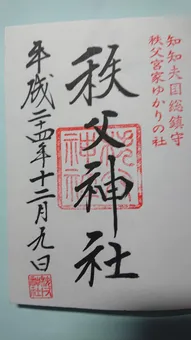 知知夫国総鎮守
秩父宮家ゆかりの社
秩父神社
平成二十四年十二月九日